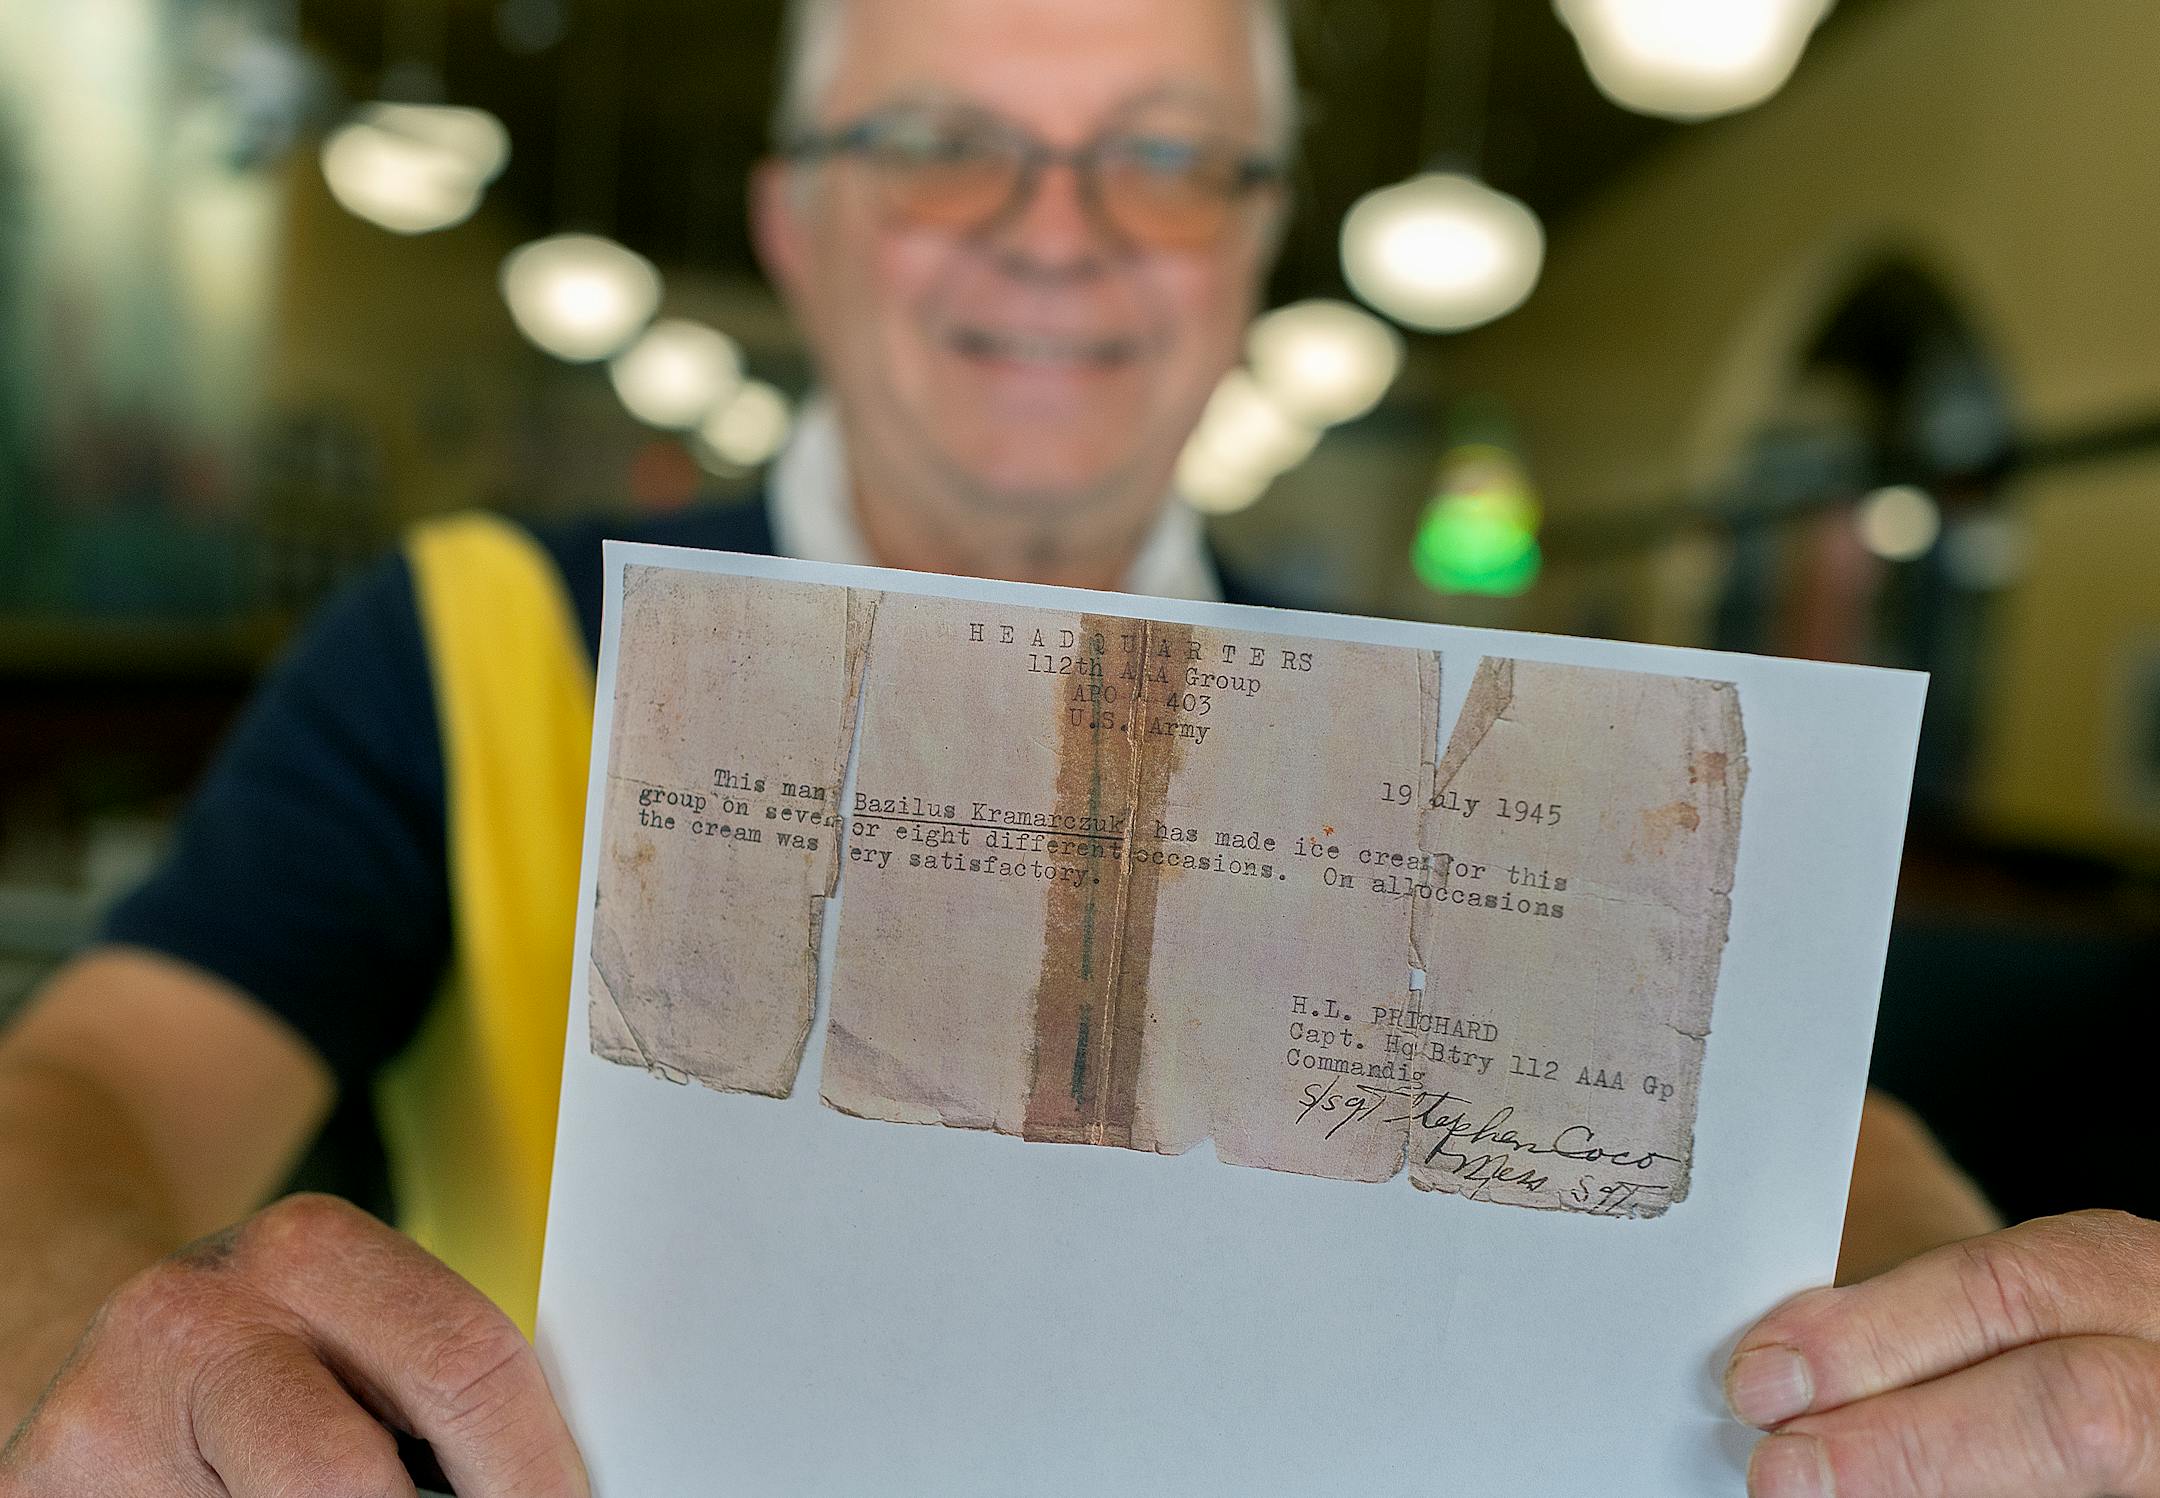 HEADQUARTERS
112th AAA Group
APO 403
U.S. Army
19 July 1945
This man Bazilus Kramarczuk has made ice cream for this
group on seven or eight different occasions. On all occasions
the cream was very satisfactory.
H.L. PRICHARD
Capt. Hq Btry 112 AAA Gp
Commandig
S/Sgt Stephen Coco
Mess Sgt